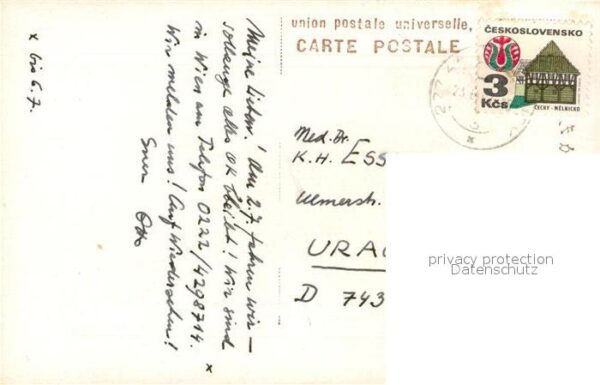 union postale universelle,
CARTE POSTALE
ČESKOSLOVENSKO
3
Kčs
ČECHY - MĚLNICKO
Meine Lieben! Am 2.7. fahren wir –
solange alles OK bleibt! Wir sind
in Wien am Telefon 0222/4298714. x
Wir melden uns! Auf Wiedersehen!
Euer Otto
x bis 6.7.
Med. Dr.
K. H. ESS
Ulmerstr.
URAC
D 743
privacy protection
Datenschutz